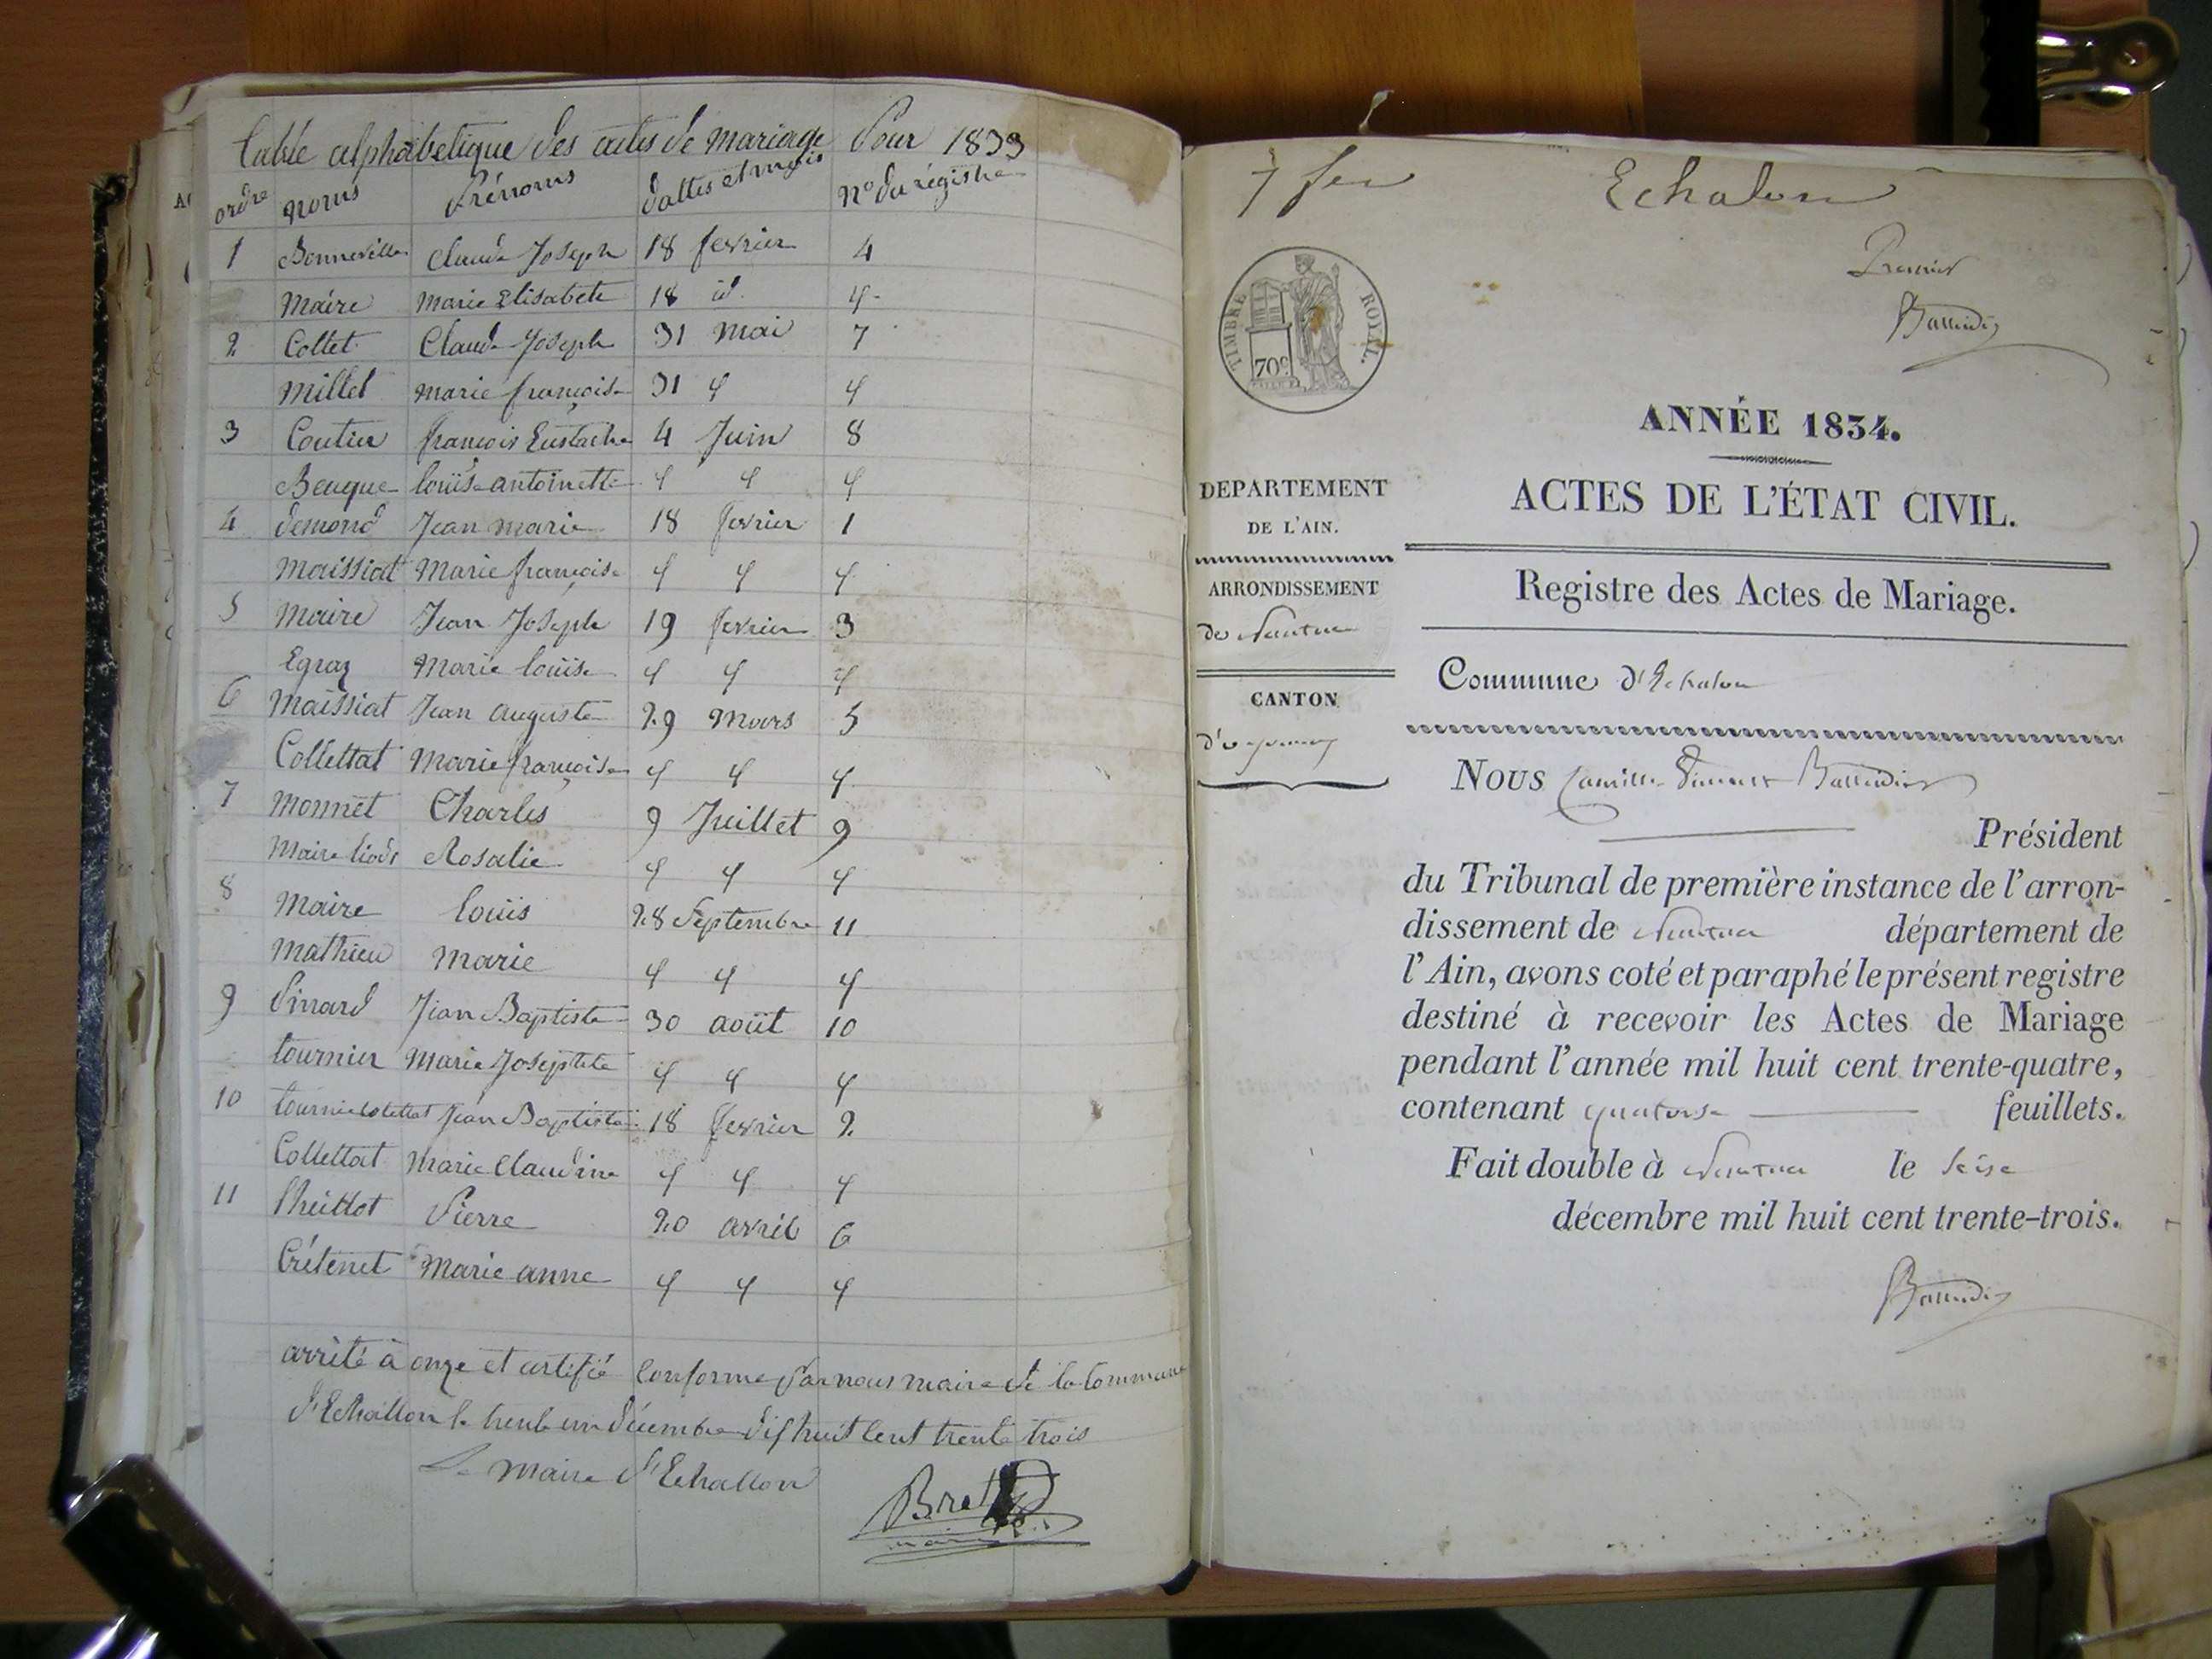 table alphabetique des actes de mariage Pour 1833
ordre noms Prénoms dattes et mois N° du régistre
1 Bonneville Claude Joseph 18 fevrier 4
Maire Marie Elisabete 18 id. 4
2 Collet Claude Joseph 31 Mai 7
Millet Marie françoise 31 4 4
3 Coutier françois Eustache 4 Juin 8
Beuque louise antoinette 4 4 4
4 demond Jean marie 18 fevrier 1
Maissiat Marie françoise 4 4 4
5 Maire Jean Joseph 19 fevrier 3
Egraz Marie louise 4 4 4
6 Maissiat Jean Auguste 29 Mars 5
Collettat Marie françoise 4 4 4
7 Monnet Charles 9 Juillet 9
Maire Rosalie 4 4 4
8 Maire louis 28 Septembre 11
Mathieu Marie 4 4 4
9 Pinard Jean Baptiste 30 août 10
tournier Marie Josephte 4 4 4
10 Jean Baptiste 18 fevrier 2
Collettat Marie Claudine 4 4 4
11 Pierre 20 avril 6
Crétenet Marie anne 4 4 4
arrêté à onze et certifié Conforme Par nous maire de la Commune
d'Echallon le trente un décembre dix huit Cent trente trois
Le Maire d'Echallon
7 Echalon
Premier
TIMBRE ROYAL.
70c
ANNÉE 1834.
DEPARTEMENT
DE L'AIN.
ACTES DE L'ÉTAT CIVIL.
ARRONDISSEMENT
de Nantua
Registre des Actes de Mariage.
Commune d'Echalon
CANTON
d'oyonnax
Nous Camille
Président
du Tribunal de première instance de l'arron-
dissement de Nantua département de
l'Ain, avons coté et paraphé le présent registre
destiné à recevoir les Actes de Mariage
pendant l'année mil huit cent trente-quatre,
contenant quatorze feuillets.
Fait double à Nantua le seize
décembre mil huit cent trente-trois.